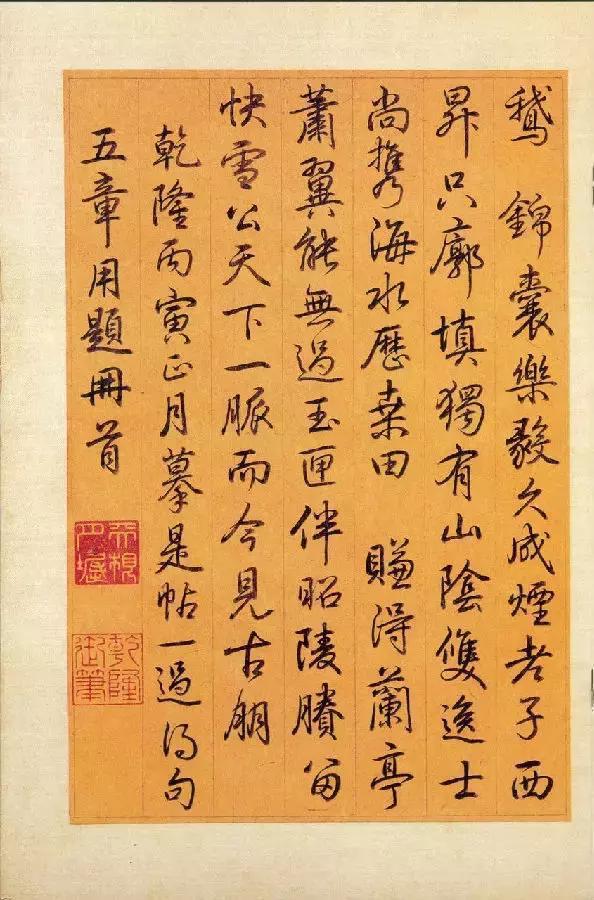 鵝　錦囊樂毅久成煙老子西
昇只廓填獨有山陰雙逸士
尚携海水歷桒田　賺得蘭亭
蕭翼能無過玉匣伴昭陵賸留
快雪公天下一脈而今見古朋
乾隆丙寅正月摹是帖一過得句
五章用題冊首
乾隆御筆